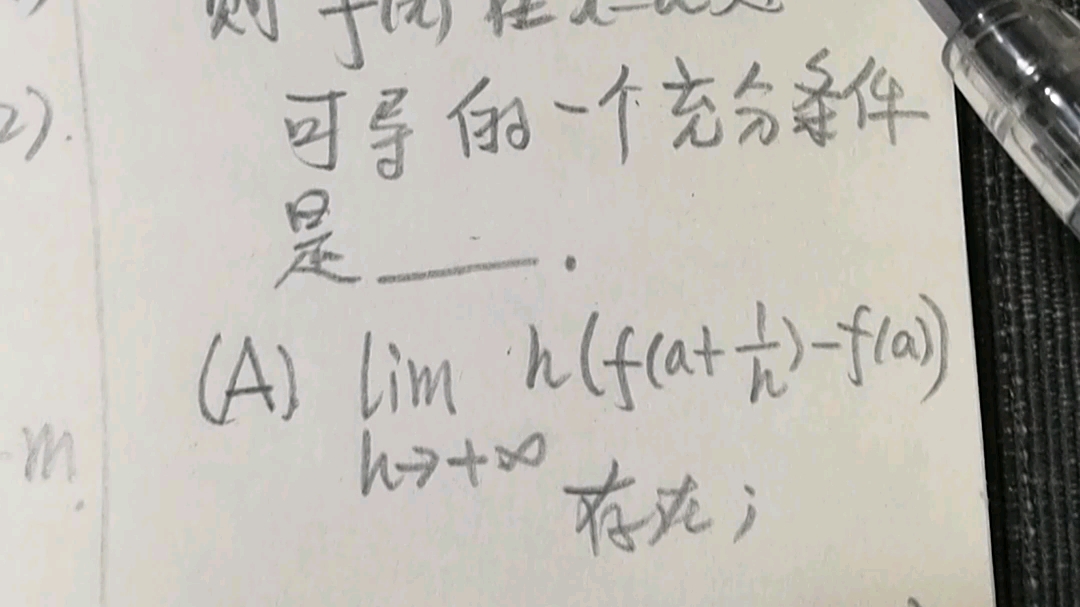 则 f(x) 在 x=a 处
2).
可导的一个充分条件
是____.
(A) lim h(f(a+1/h)-f(a))
h→+∞
m
存在;